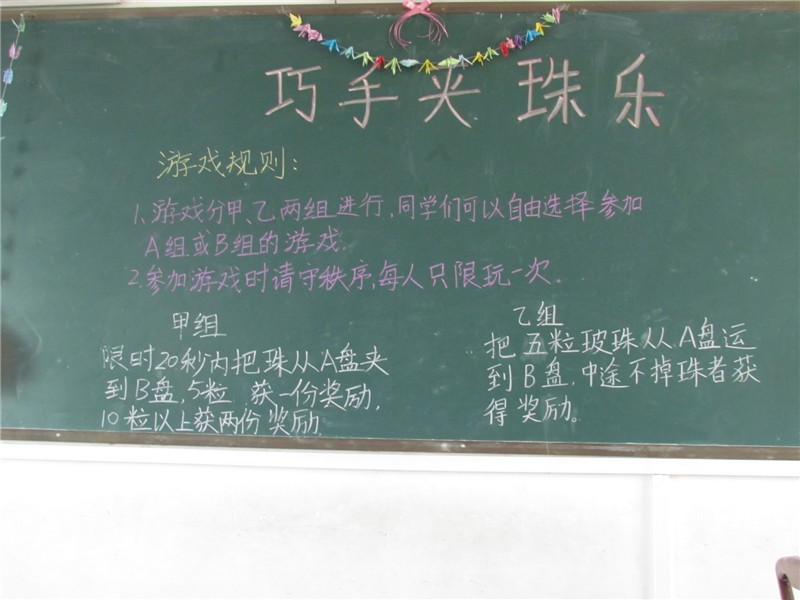 巧手夹珠乐
游戏规则：
1、游戏分甲、乙两组进行，同学们可以自由选择参加
A组或B组的游戏.
2.参加游戏时请守秩序，每人只限玩一次.
甲组
限时20秒内把珠从A盘夹
到B盘，5粒 获一份奖励，
10粒以上获两份奖励.
乙组
把五粒玻珠从A盘运
到B盘，中途不掉珠者获
得奖励。